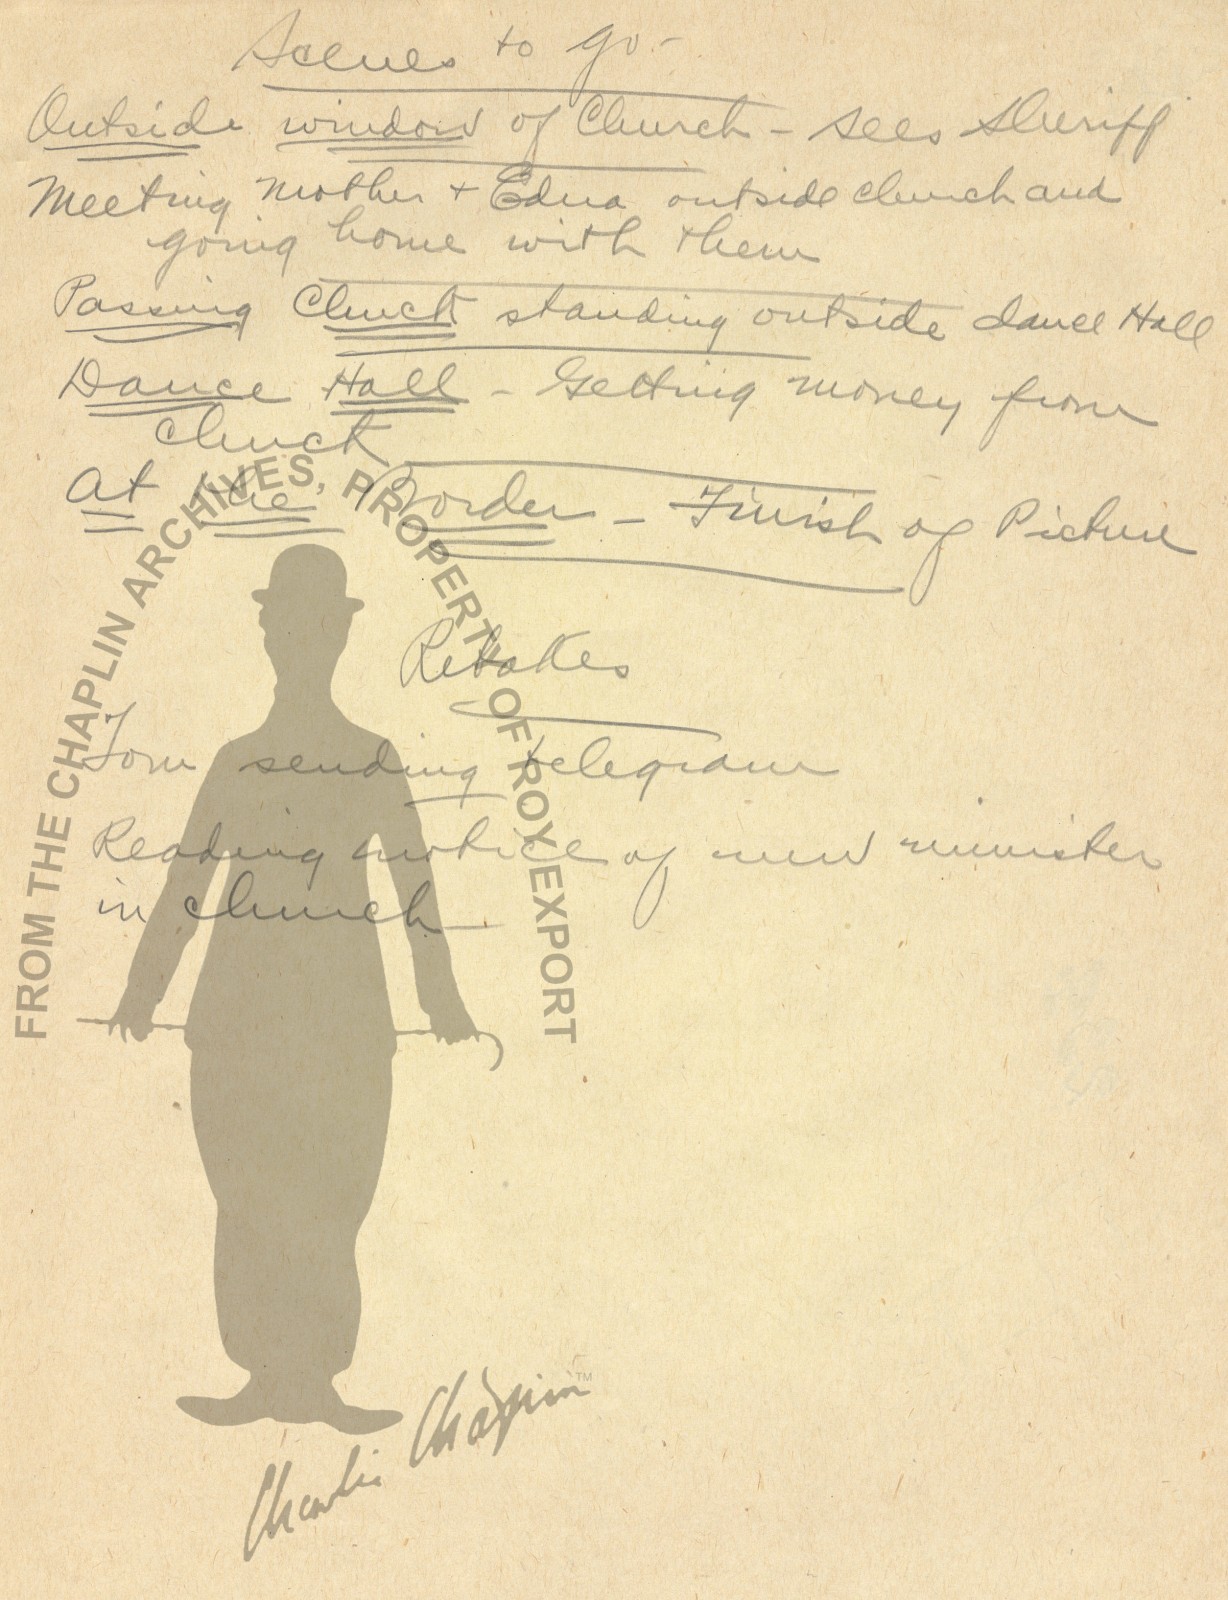 Scenes to go -
Outside window of Church - sees Sheriff
Meeting Mother + Edna outside church and
going home with them
Passing Chuck standing outside dance Hall
Dance Hall - Getting money from
Chuck
At the Border - Finish of Picture
Retakes
Tom sending telegram
Reading notice of new minister
in church
FROM THE CHAPLIN ARCHIVES, PROPERTY OF ROY EXPORT
Charlie Chaplin™